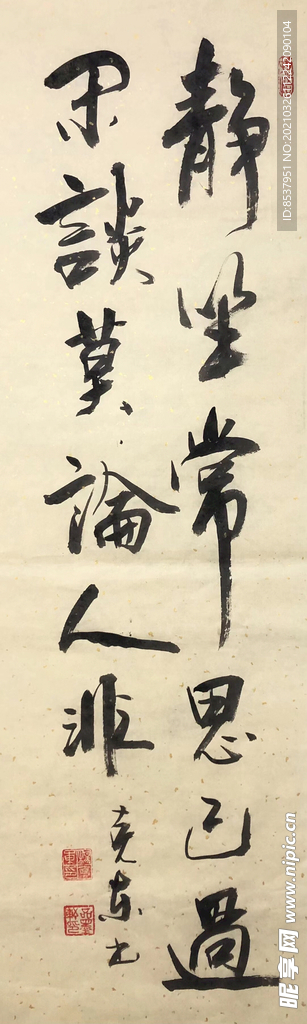 靜坐常思己過
閑談莫論人非
克東書
ID:8537951 NO:20210326112242090104
昵享网 www.nipic.cn